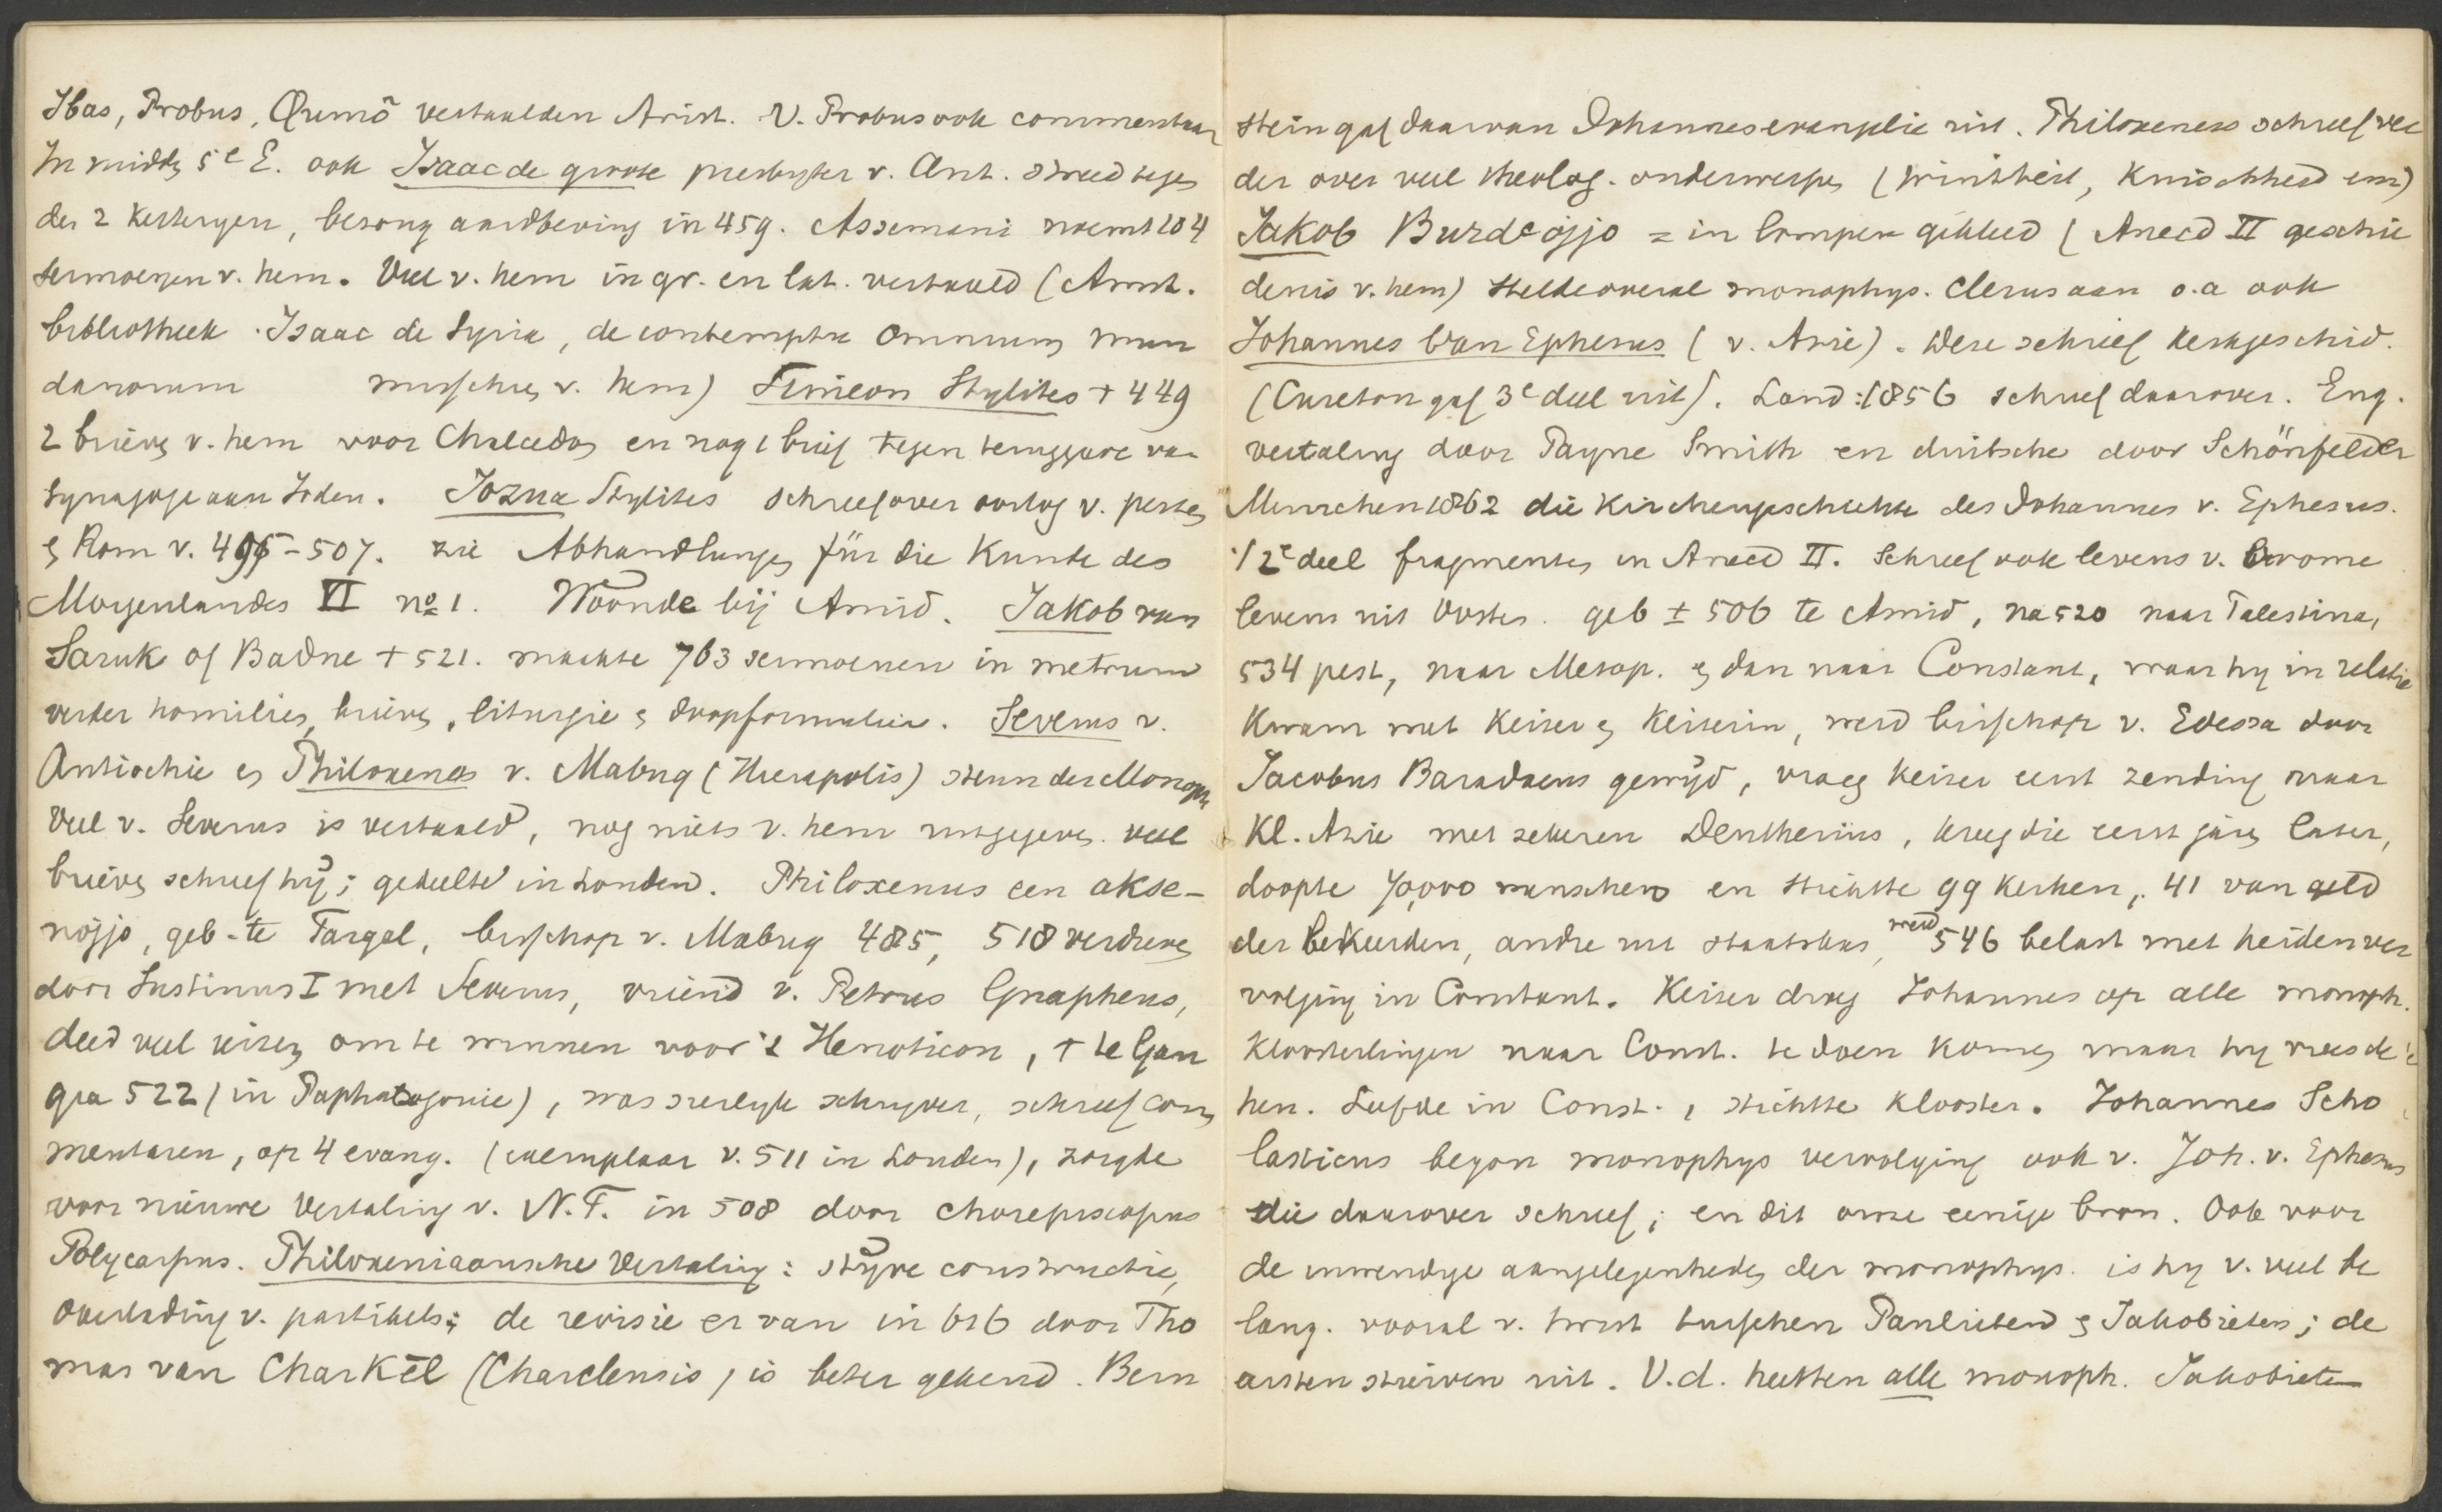 Ibas, Probus, Qumō vertaalden Arist. V. Probus ook commentaar
In midd, 5e E. ook Isaac de groote presbyter v. Ant. streed tegen
der 2 ketteryen, besong aardbeving in 459. Assemani noemt 104
sermoenen v. hem. Veel v. hem in gr. en lat. vertaald (Amst.
bibliotheek . Isaac de Syria, de contemptu omnium mun
danorum v. hem) Simeon Stylites + 449
2 brieven v. hem voor Chalcedon en nog 1 brief tegen teruggave van
Synagoge aan Joden. Jozua Stylites schreef over oorlog v. perzen
en Rom v. 495-507. zie Abhandlungen für die Kunde des
Morgenlandes VI no 1. Woonde bij Amid. Jakob van
Saruk of Badne + 521. maakte 763 sermoenen in metrum
verder homilies, brieven, liturgie en doopformulier. Severus v.
Antiochie en Philoxenos v. Mabug (Hierapolis) steun der Monoph
Veel v. Severus is vertaald, nog niets v. hem uitgegeven. veel
brieven schreef hij; gedeelte in Londen. Philoxenus een akse-
nojjo, geb. te Targal, bisschop v. Mabug 485, 518 verdreven
door Justinus I met Severus, vriend v. Petrus Gnapheus,
deed veel reizen om te winnen voor 't Henoticon, + te Gan
gra 522 (in Paphlagonie), was sierlyk schryver, schreef com
mentaren, op 4 evang. (exemplaar v. 511 in Londen), zorgde
voor nieuwe Vertaling v. N.T. in 508 door chorepiscopus
Polycarpus. Philoxeniaansche Vertaling: stijve constructie,
overlading v. partikels; de revisie er van in 616 door Tho
mas van Charkēl (Charclensis) is beter gekend. Bern
stein gaf daarvan Johannesevangelie uit. Philoxenus schreef ver
der over veel theolog. onderwerpen (triniteit, Kuischheid enz)
Jakob Burdeojjo = in lompen gekleed (Anecd II geschie
denis v. hem) stelde overal monophys. Clerus aan o.a ook
Johannes van Ephesus (v. Azie). Deze schreef kerkgeschied.
(Cureton gaf 3e deel uit). Land: 1856 schreef daarover. Eng.
vertaling door Payne Smith en duitsche door Schönfelder
Munchen 1862 die Kirchengeschichte des Johannes v. Ephesus.
2e deel fragmenten in Anecd II. Schreef ook levens v. vrome
levens uit Oosten. geb ± 506 te Amid, na 520 naar Palestina,
534 pest, naar Mesop. en dan naar Constant, waar hy in relatie
Kwam met Keizer en Keizerin, werd bisschop v. Edessa door
Jacobus Baradaeus gewijd, vroeg Keizer eerst zending naar
Kl. Azie met zekeren Deutherius, kreeg die eerst jaren later,
doopte 70,000 menschen en stichtte 99 kerken, 41 van geld
der bekeerden, andre uit staatskas, werd 546 belast met heidenver
volging in Constant. Keizer droeg Johannes op alle monoph.
Kloosterlingen naar Const. te doen komen maar hy vreesde 't
hen. Leefde in Const., stichtte klooster. Johannes Scho
lasticus begon monophys vervolging ook v. Joh. v. Ephesus
die daarover schreef; en dit onze eenige bron. Ook voor
de inwendige aangelegenheden der monophys. is hy v. veel be
lang. vooral v. twist tusschen Paulieten en Jakobieten; de
eersten stierven uit. V.d. heetten alle monoph. Jakobieten